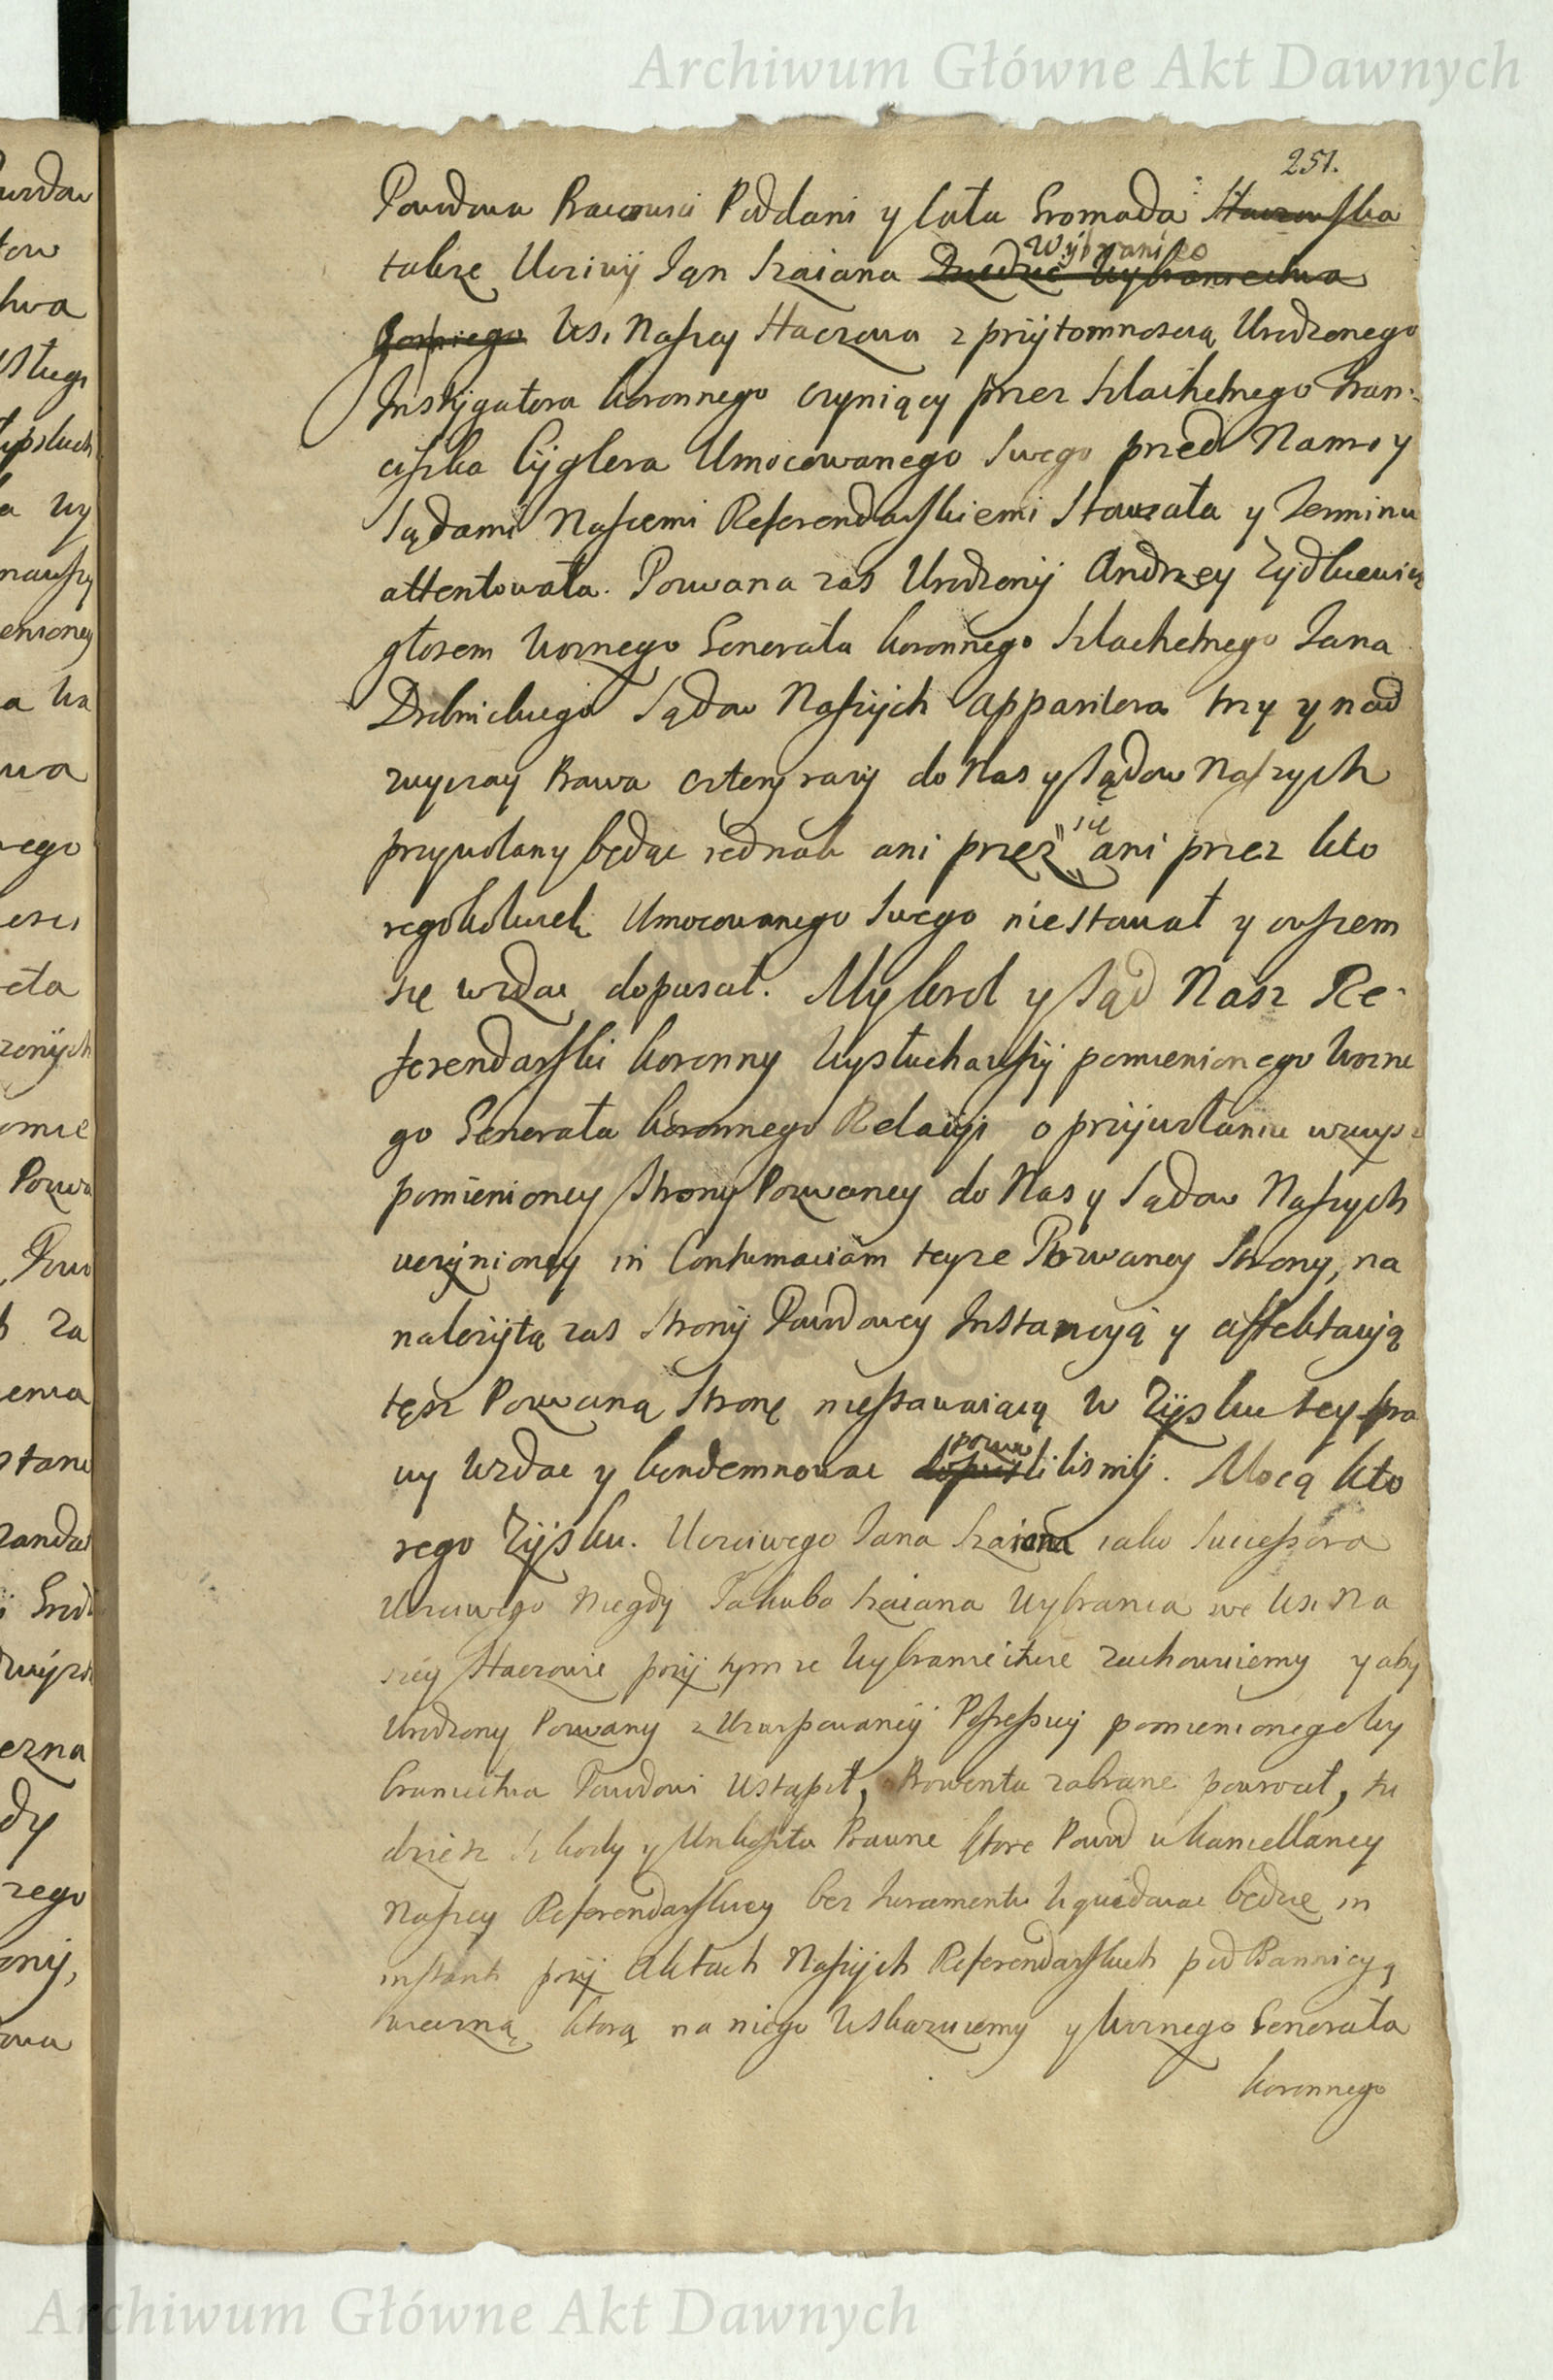 Archiwum Główne Akt Dawnych
251.
Powodowa Pracowici Poddani y cała Gromada Haczowska
takze Uczciwy Jan Szaiana Dziedzic Wybraniectwa
Wybraniec
Gorniego Wsi Naszey Haczowa z przytomnoscią Urodzonego
Instygatora koronnego czyniący przez Szlachetnego Fran-
ciszka Cyglera Umocowanego Swego przed Nami y
Sądami Naszemi Referendarskiemi Stawała y Terminu
attentowała. Pozwana zas Urodzony Andrzey Żydkiewicz
głosem Woznego Generała koronnego Szlachetnego Jana
Drebnickiego Sądow Naszych Apparitora trzy y nad
zwyczay Prawa cztery razy do Nas y Sądow Naszych
przywołany będąc iednak ani przez się ani przez kto
regokolwiek Umocowanego Swego niestawał y owszem
się wzdac dopuscił. My krol y Sąd Nasz Re-
ferendarski koronny Wysłuchawszy pomienionego Wozne
go Generała koronnego Relacyi o przywołaniu wzwysz
pomienioney Strony Pozwaney do Nas y Sądow Naszych
uczynioney in Contumaciam teyze Pozwaney Strony, na
nalezytą zas Strony Powodowey Instancyą y affektacyą
tęsz Pozwaną Stronę niestawaiącą w Zysku tey spra
wy Wzdac y kondemnowac dopuscilismy. Mocą kto
pozwo
rego Zysku. Uczciwego Jana Szaiana iako Successora
Uczciwego Niegdy Jakuba Szaiana Wybranca we Wsi Na
szey Haczowie przy tymze Wybraniectwie zachowuiemy y aby
Urodzony Pozwany z Uzurpowaney Possessyi pomienionego Wy
braniectwa Powodowi Ustąpił, Prowenta zabrane powrocił, tu
dziesz Szkody y Unkoszta Prawne ktore Powod w kancellaryi
Naszey Referendarskiey bez Juramentu liquidowac będzie in
instanti przy Aktach Naszych Referendarskich pod Bannicyą
wieczną ktorą na niego Wskazuiemy y Woznego Generała
koronnego
Archiwum Główne Akt Dawnych